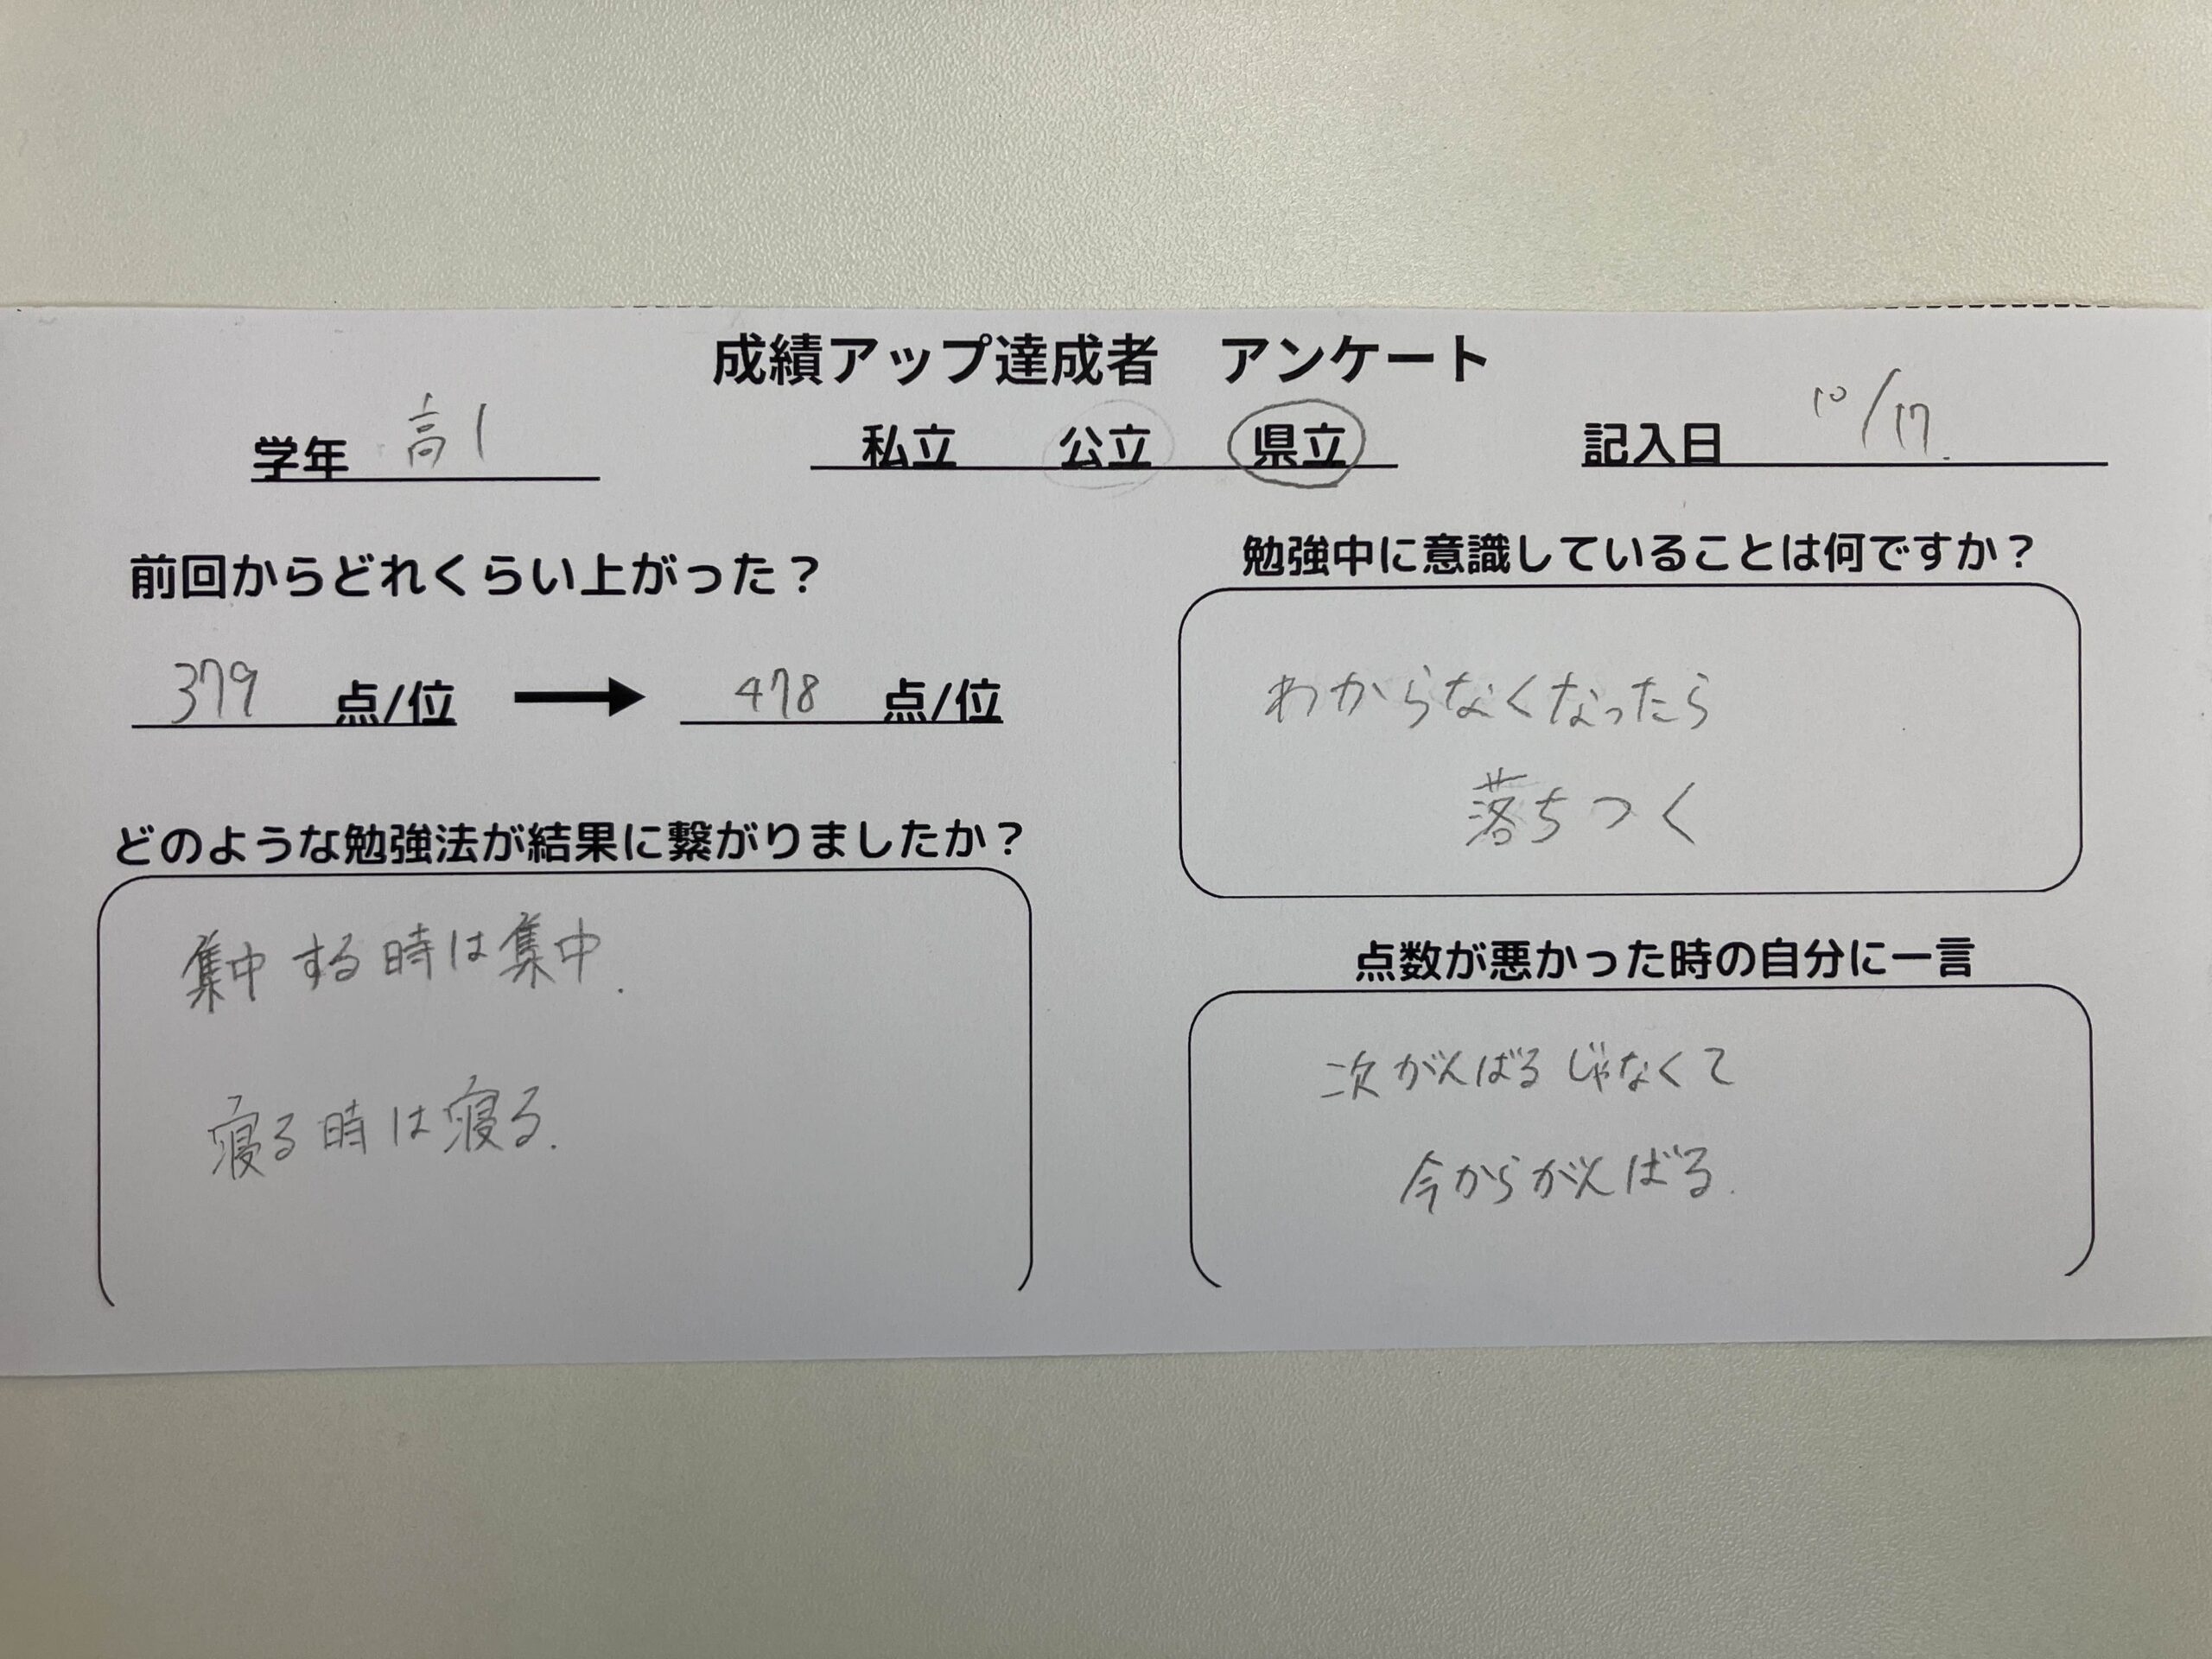 成績アップ達成者　アンケート
学年 高1　私立　公立　県立　記入日 10/17
前回からどれくらい上がった？
379 点/位 → 478 点/位
どのような勉強法が結果に繋がりましたか？
集中する時は集中.
寝る時は寝る.
勉強中に意識していることは何ですか？
わからなくなったら
落ちつく
点数が悪かった時の自分に一言
次がんばるじゃなくて
今からがんばる.